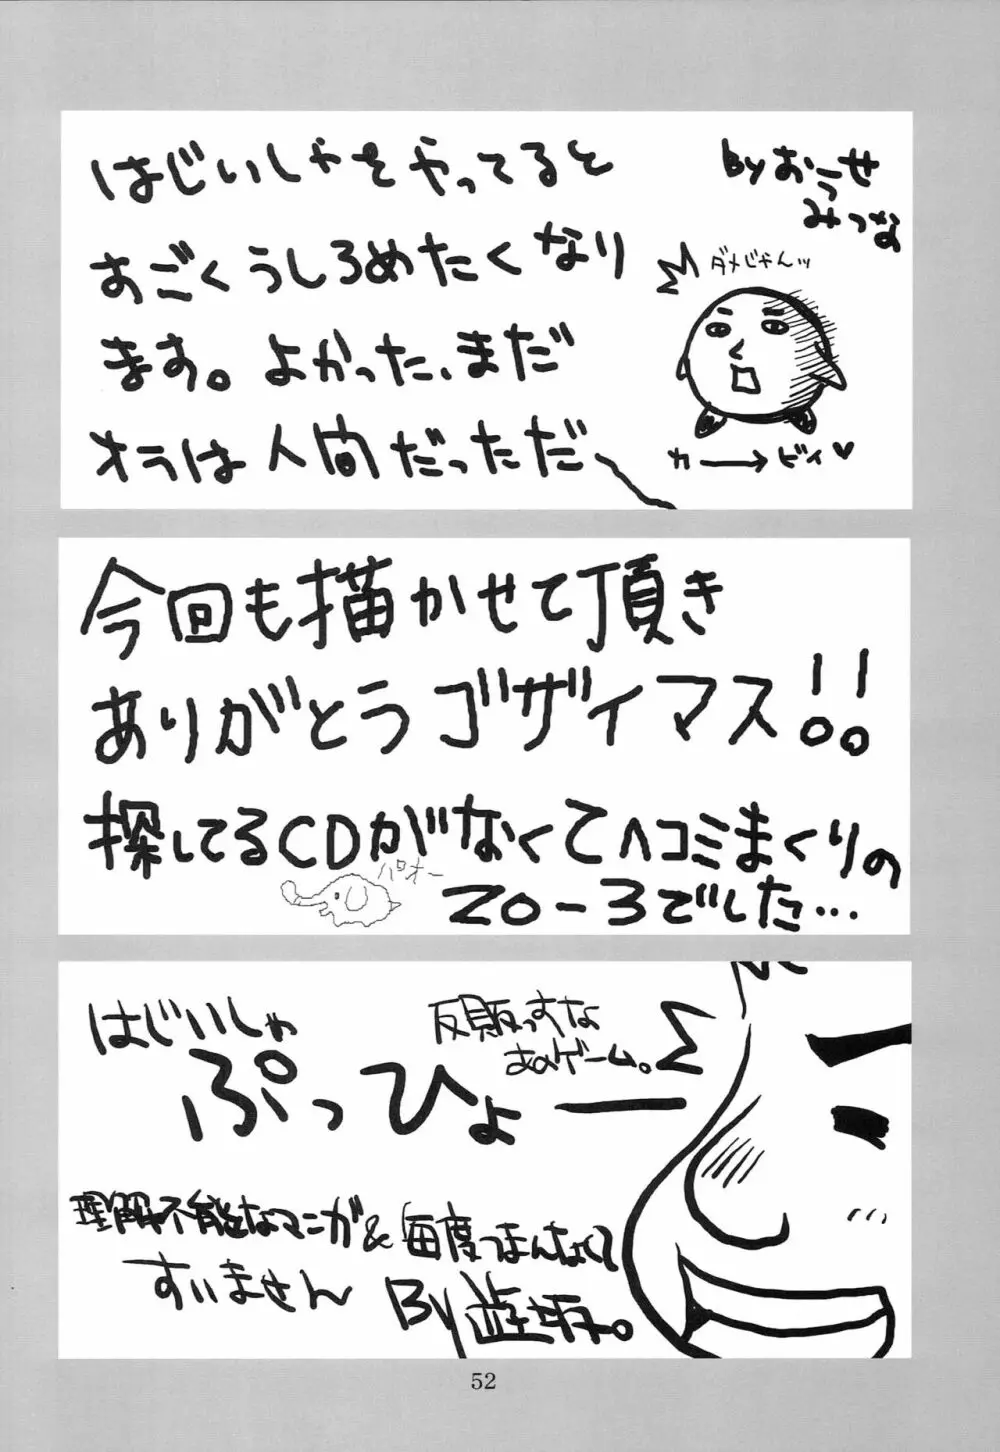 はじいしゃをやってると
すごくうしろめたくなり
ます。よかった、まだ
オラは人間だっただ
Byおうせ
みつな
ダメじゃんッ
カ→ビィ♥
今回も描かせて頂き
ありがとうゴザイマス!!
探してるCDがなくてヘコミまくりの
パオー
ZO-3でした…
はじいしゃ
ぷっひょー
反則っすな
あのゲーム。
理解不能なマンガ&毎度つまんなくて
すいません
By遊
52